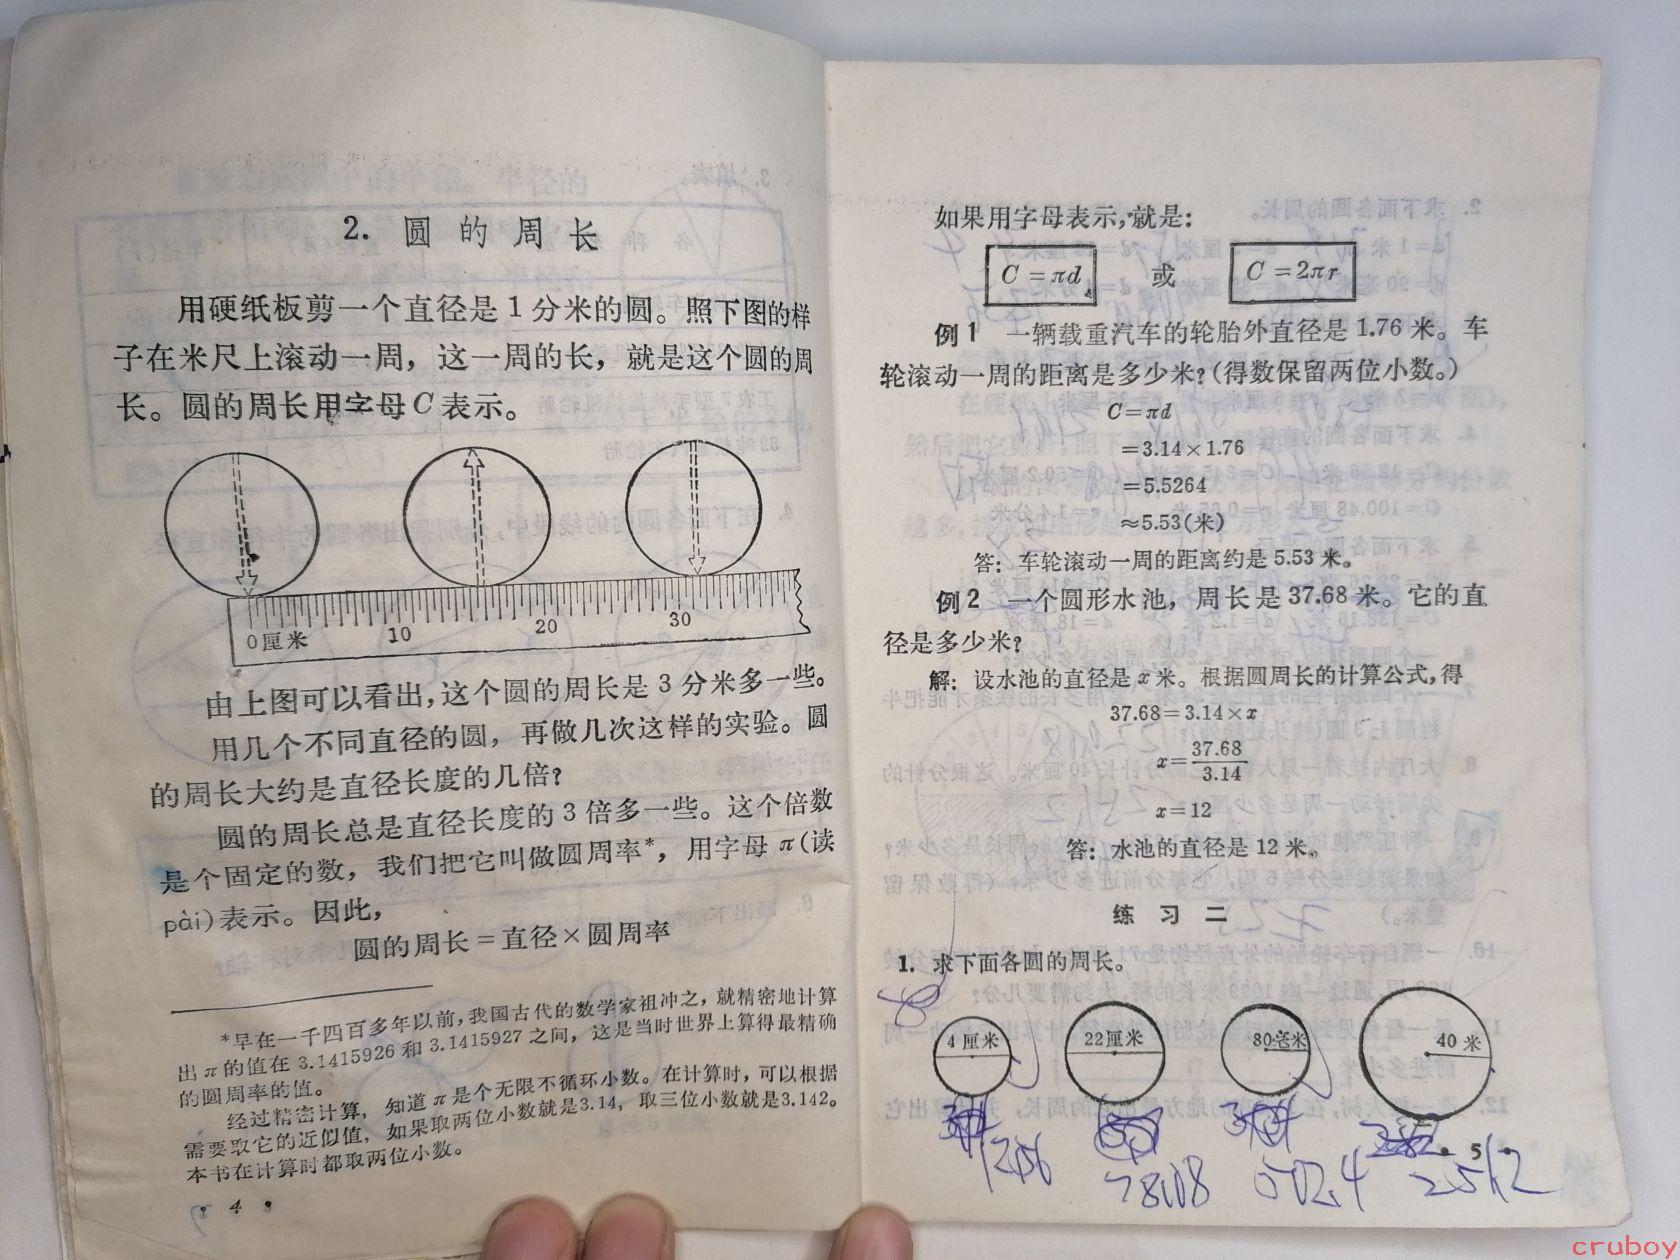 2. 圆的周长
用硬纸板剪一个直径是1分米的圆。照下图的样
子在米尺上滚动一周，这一周的长，就是这个圆的周
长。圆的周长用字母C表示。
0厘米 10 20 30
由上图可以看出，这个圆的周长是3分米多一些。
用几个不同直径的圆，再做几次这样的实验。圆
的周长大约是直径长度的几倍？
圆的周长总是直径长度的3倍多一些。这个倍数
是个固定的数，我们把它叫做圆周率*，用字母π(读
pài)表示。因此，
圆的周长=直径×圆周率
*早在一千四百多年以前，我国古代的数学家祖冲之，就精密地计算
出π的值在3.1415926和3.1415927之间，这是当时世界上算得最精确
的圆周率的值。
经过精密计算，知道π是个无限不循环小数。在计算时，可以根据
需要取它的近似值，如果取两位小数就是3.14，取三位小数就是3.142。
本书在计算时都取两位小数。
• 4 •
如果用字母表示，就是：
C=πd 或 C=2πr
例1 一辆载重汽车的轮胎外直径是1.76米。车
轮滚动一周的距离是多少米？(得数保留两位小数。)
C=πd
=3.14×1.76
=5.5264
≈5.53(米)
答：车轮滚动一周的距离约是5.53米。
例2 一个圆形水池，周长是37.68米。它的直
径是多少米？
解：设水池的直径是x米。根据圆周长的计算公式，得
37.68=3.14×x
x=37.68/3.14
x=12
答：水池的直径是12米。
练习二
1. 求下面各圆的周长。
4厘米 22厘米 80毫米 40米
• 5 •
502.4 251.2
cruboy